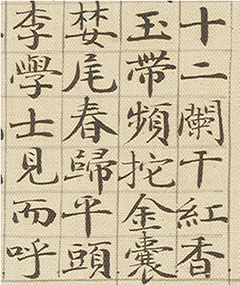 十二闌干紅香
玉帶頻拕金囊
婪尾春歸平頭
李學士見而呼